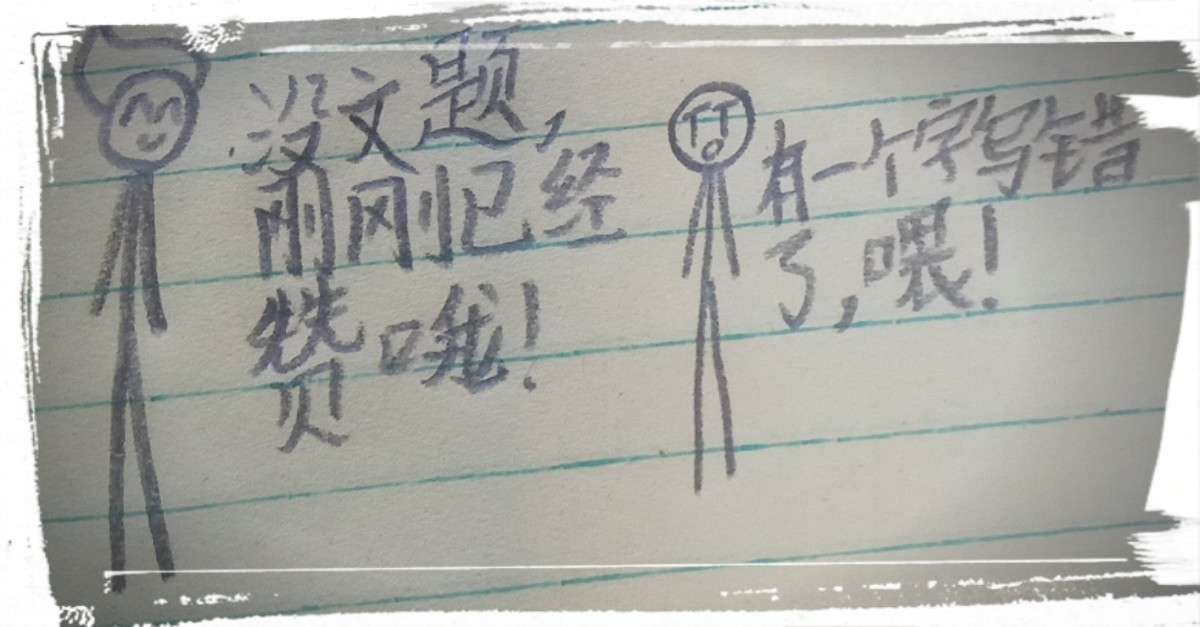 没文题,
刚刚已经
赞哦!
有一个字写错
了,喂!